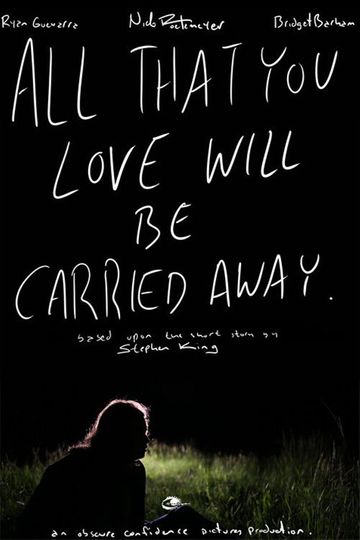 Ryan Guevarra Nick Roetemeyer Bridget Barham
ALL THAT YOU
LOVE WILL
BE
CARRIED AWAY.
based upon the short story by
Stephen King
an obscure confidence pictures production.